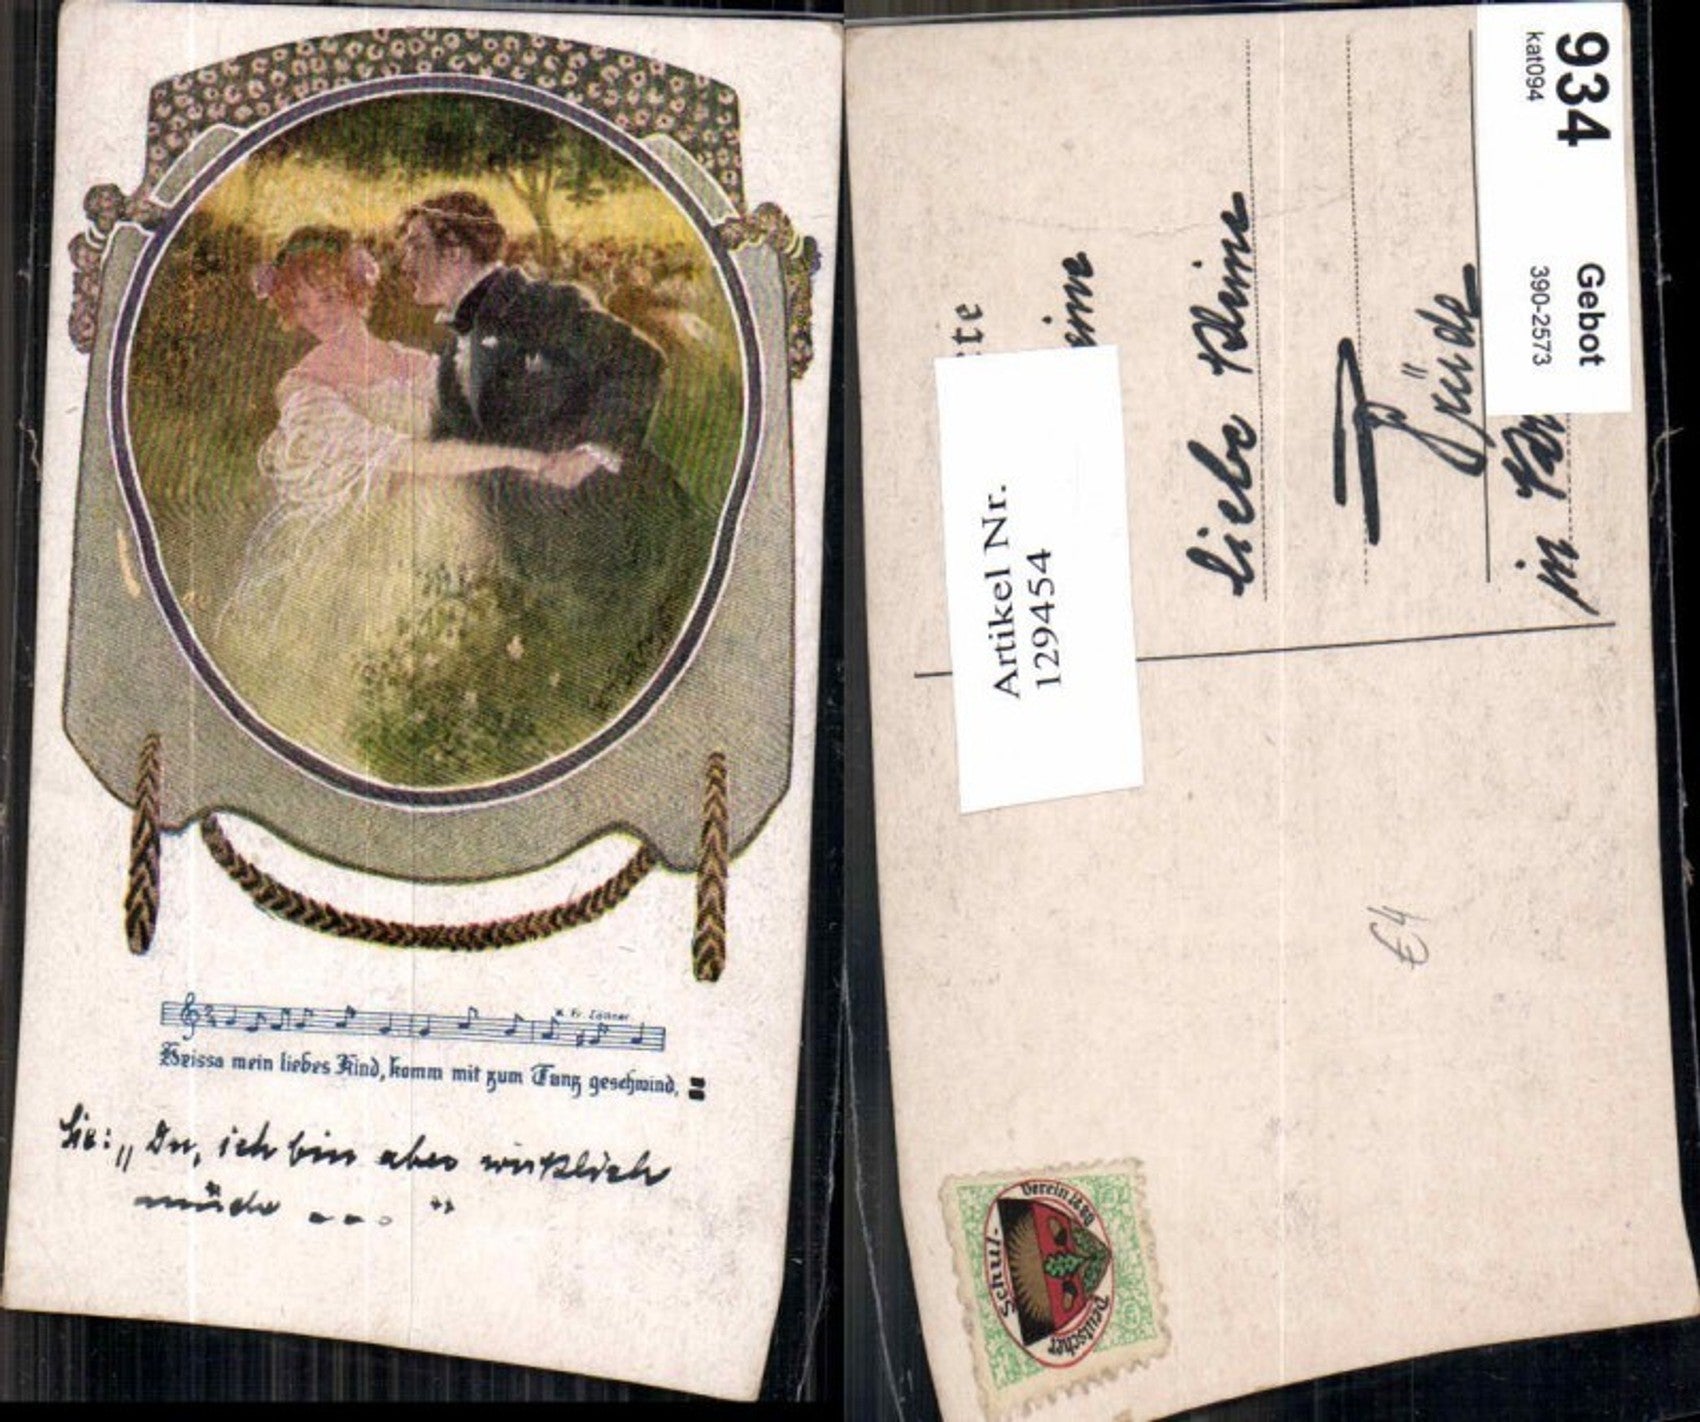 K. Fr. Zöllner.
Heissa mein liebes Kind, komm mit zum Tanz geschwind.
Sie: „Du, ich bin aber wirklich
müde ... "
934
kat094
Gebot
390-2573
Artikel Nr.
129454
liebe
in
€4
Deutscher Schul-Verein 1880